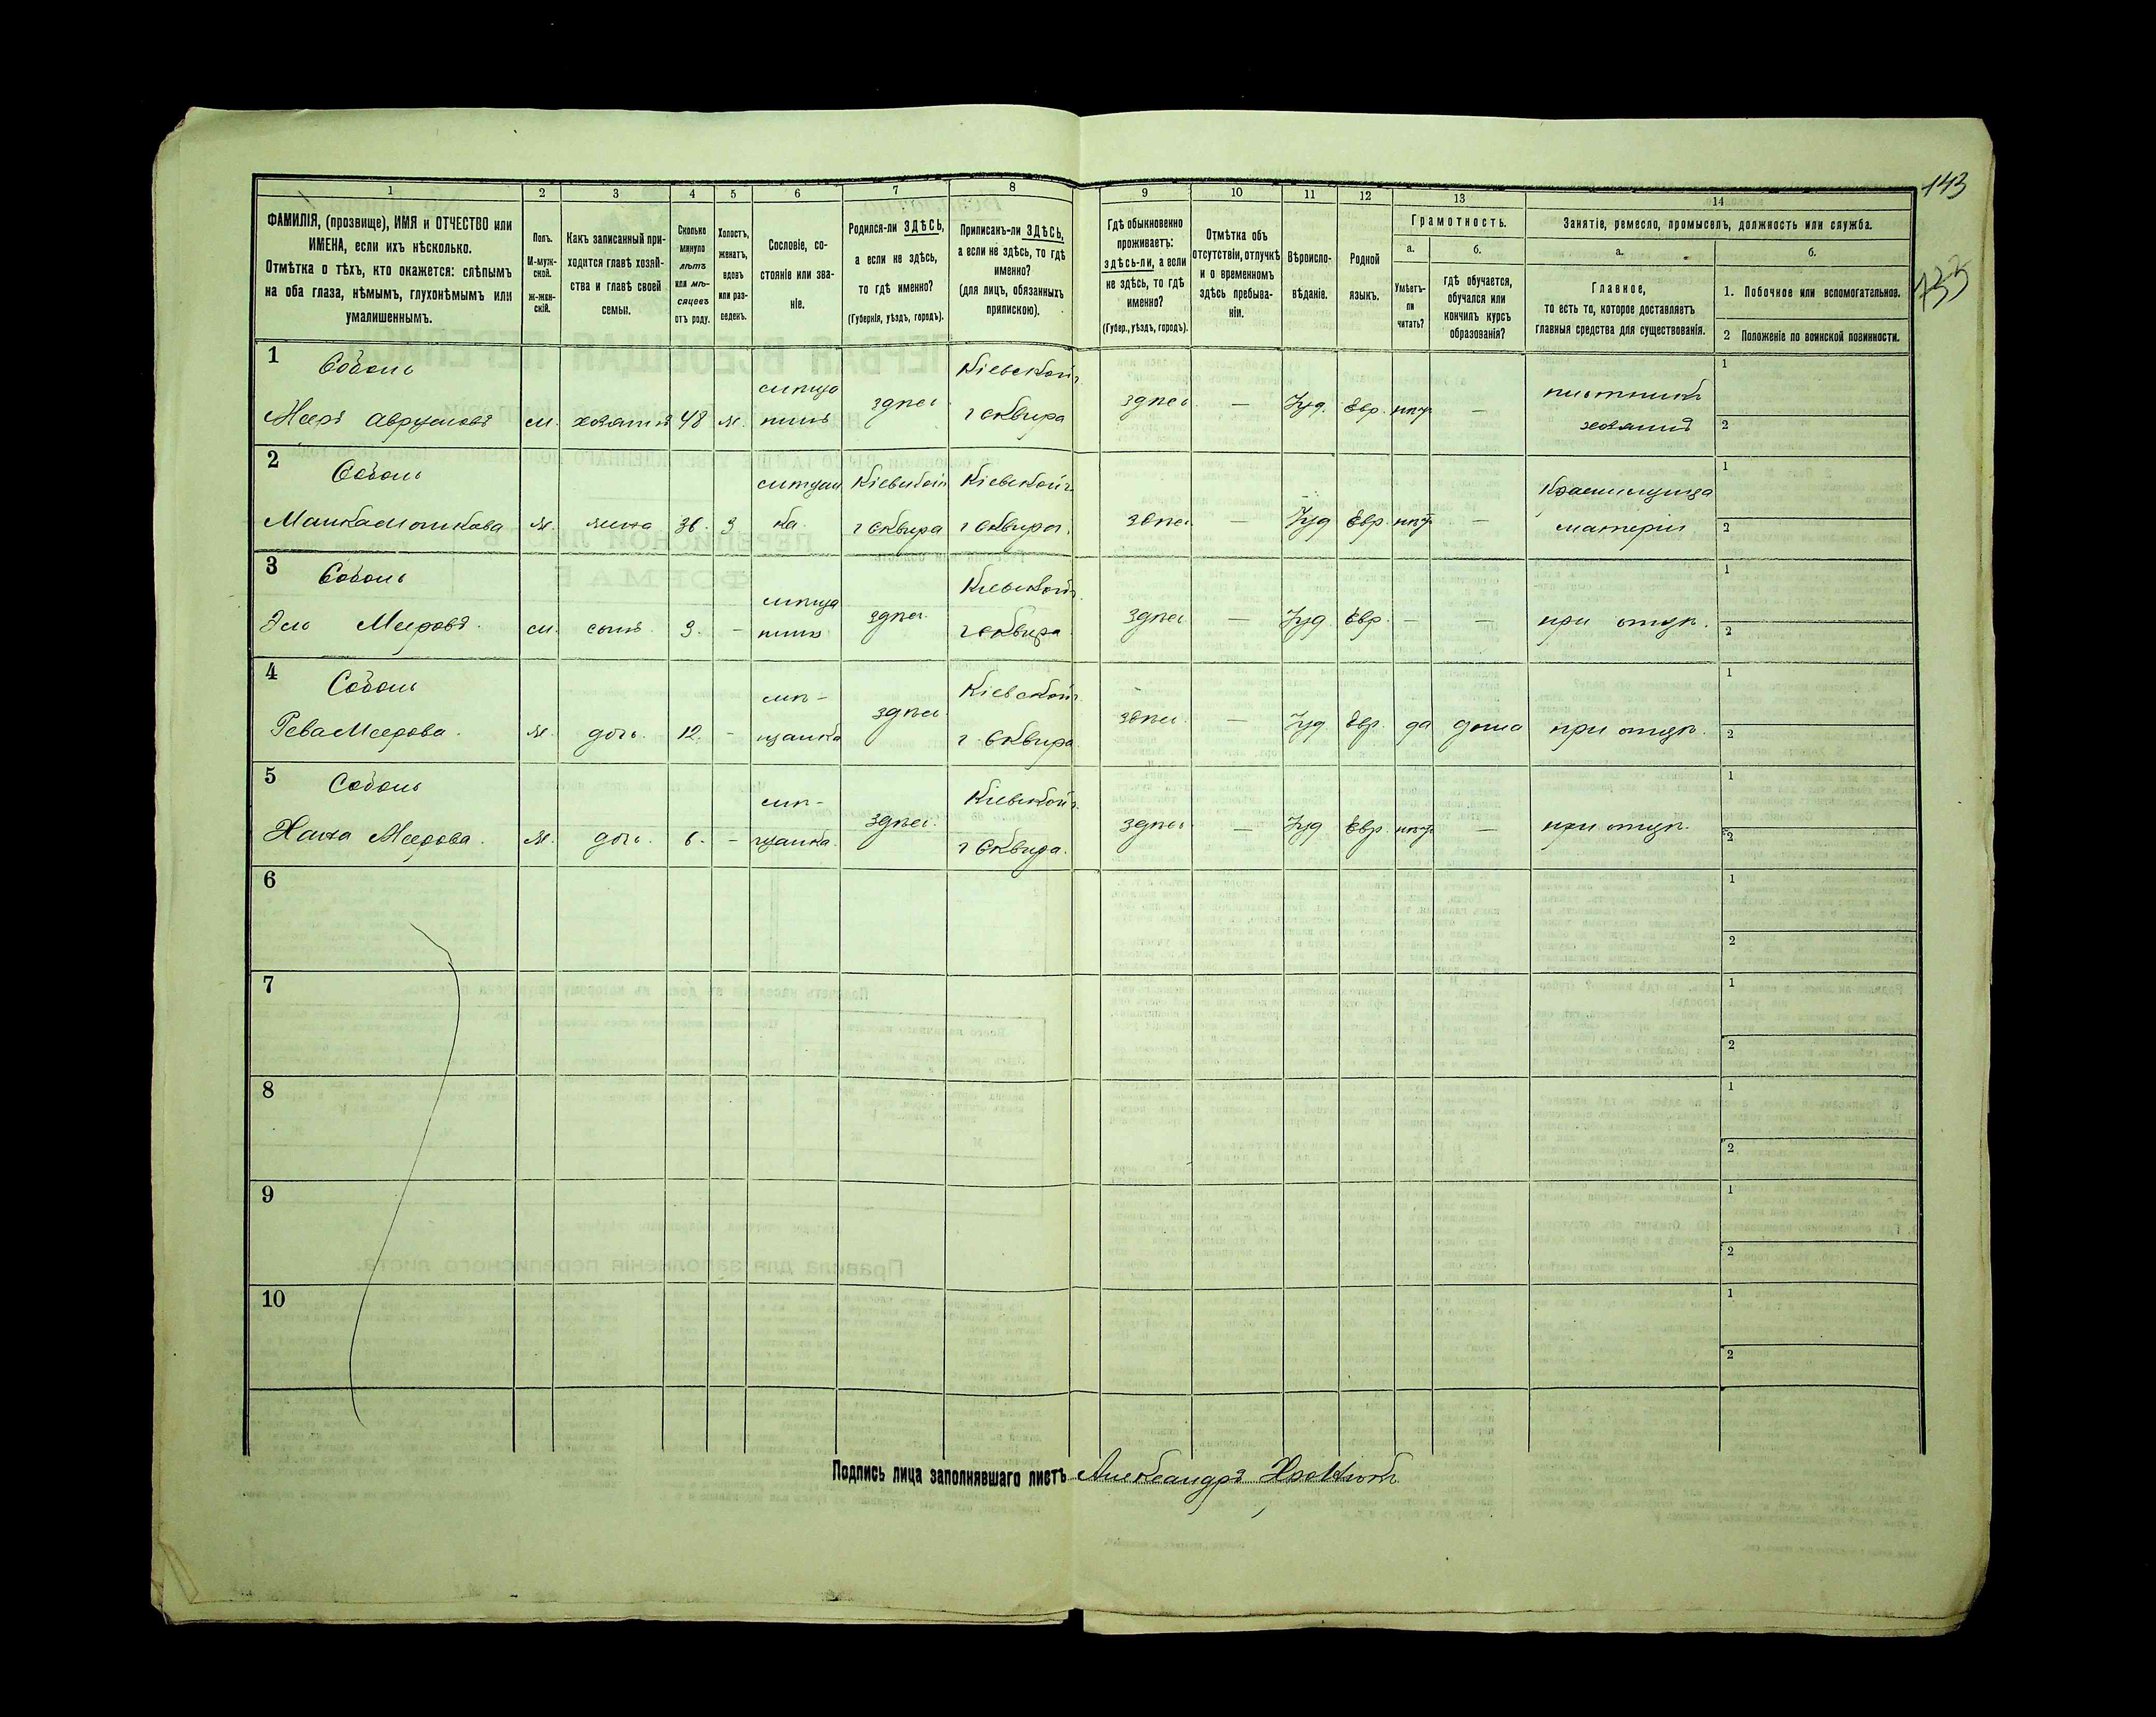 143
733
1 2 3 4 5 6 7 8 9 10 11 12 13 14
ФАМИЛІЯ, (прозвище), ИМЯ и ОТЧЕСТВО или
ИМЕНА, если ихъ нѣсколько.
Отмѣтка о тѣхъ, кто окажется: слѣпымъ
на оба глаза, нѣмымъ, глухонѣмымъ или
умалишеннымъ.
Полъ.
М-муж-
ской.
ж-жен-
скій.
Какъ записанный при-
ходится главѣ хозяй-
ства и главѣ своей
семьи.
Сколько
минуло
лѣтъ
или мѣ-
сяцевъ
отъ роду.
Холостъ,
женатъ,
вдовъ
или раз-
веденъ.
Сословіе, со-
стояніе или зва-
ніе.
Родился-ли ЗДѢСЬ,
а если не здѣсь,
то гдѣ именно?
(Губернія, уѣздъ, городъ).
Приписанъ-ли ЗДѢСЬ,
а если не здѣсь, то гдѣ
именно?
(для лицъ, обязанныхъ
припискою).
Гдѣ обыкновенно
проживаетъ:
здѣсь-ли, а если
не здѣсь, то гдѣ
именно?
(Губер., уѣздъ, городъ).
Отмѣтка объ
отсутствіи, отлучкѣ
и о временномъ
здѣсь пребыва-
ніи.
Вѣроиспо-
вѣданіе.
Родной
языкъ.
Грамотность.
а.
Умѣетъ-
ли
читать?
б.
гдѣ обучается,
обучался или
кончилъ курсъ
образованія?
Занятіе, ремесло, промыселъ, должность или служба.
а.
Главное,
то есть то, которое доставляетъ
главныя средства для существованія.
б.
1. Побочное или вспомогательное.
2 Положеніе по воинской повинности.
1 Соболь
Мееръ Аврумовъ м. хозяинъ 48 ж. мѣща
нинъ здѣсь Кіевской г.
г Сквира здѣсь — Іуд. Евр. нѣтъ — плотникъ
хозяинъ 1
2
2 Соболь
Малка Мошкова ж. жена 36. з мѣщан
ка. Кіевской
г Сквира Кіевской г.
г Сквира. здѣсь — Іуд Евр. нѣтъ — Красильщица
матеріи 1
2
3 Соболь
Эль Мееровъ. м. сынъ 9. - мѣща
нинъ здѣсь. Кіевской г.
г Сквира здѣсь — Іуд Евр. — — при отцѣ. 1
2
4 Соболь
Рева Меерова. ж. дочь. 12. - мѣ-
щанка здѣсь. Кіевской г.
г. Сквира. здѣсь. — Іуд Евр. да дома при отцѣ. 1
2
5 Соболь
Хана Меерова. ж. дочь. 6. - мѣ-
щанка. здѣсь. Кіевской г.
г Сквира. здѣсь — Іуд Евр. нѣтъ — при отцѣ. 1
2
6 1
2
7 1
2
8 1
2
9 1
2
10 1
2
Подпись лица заполнявшаго листъ Александръ